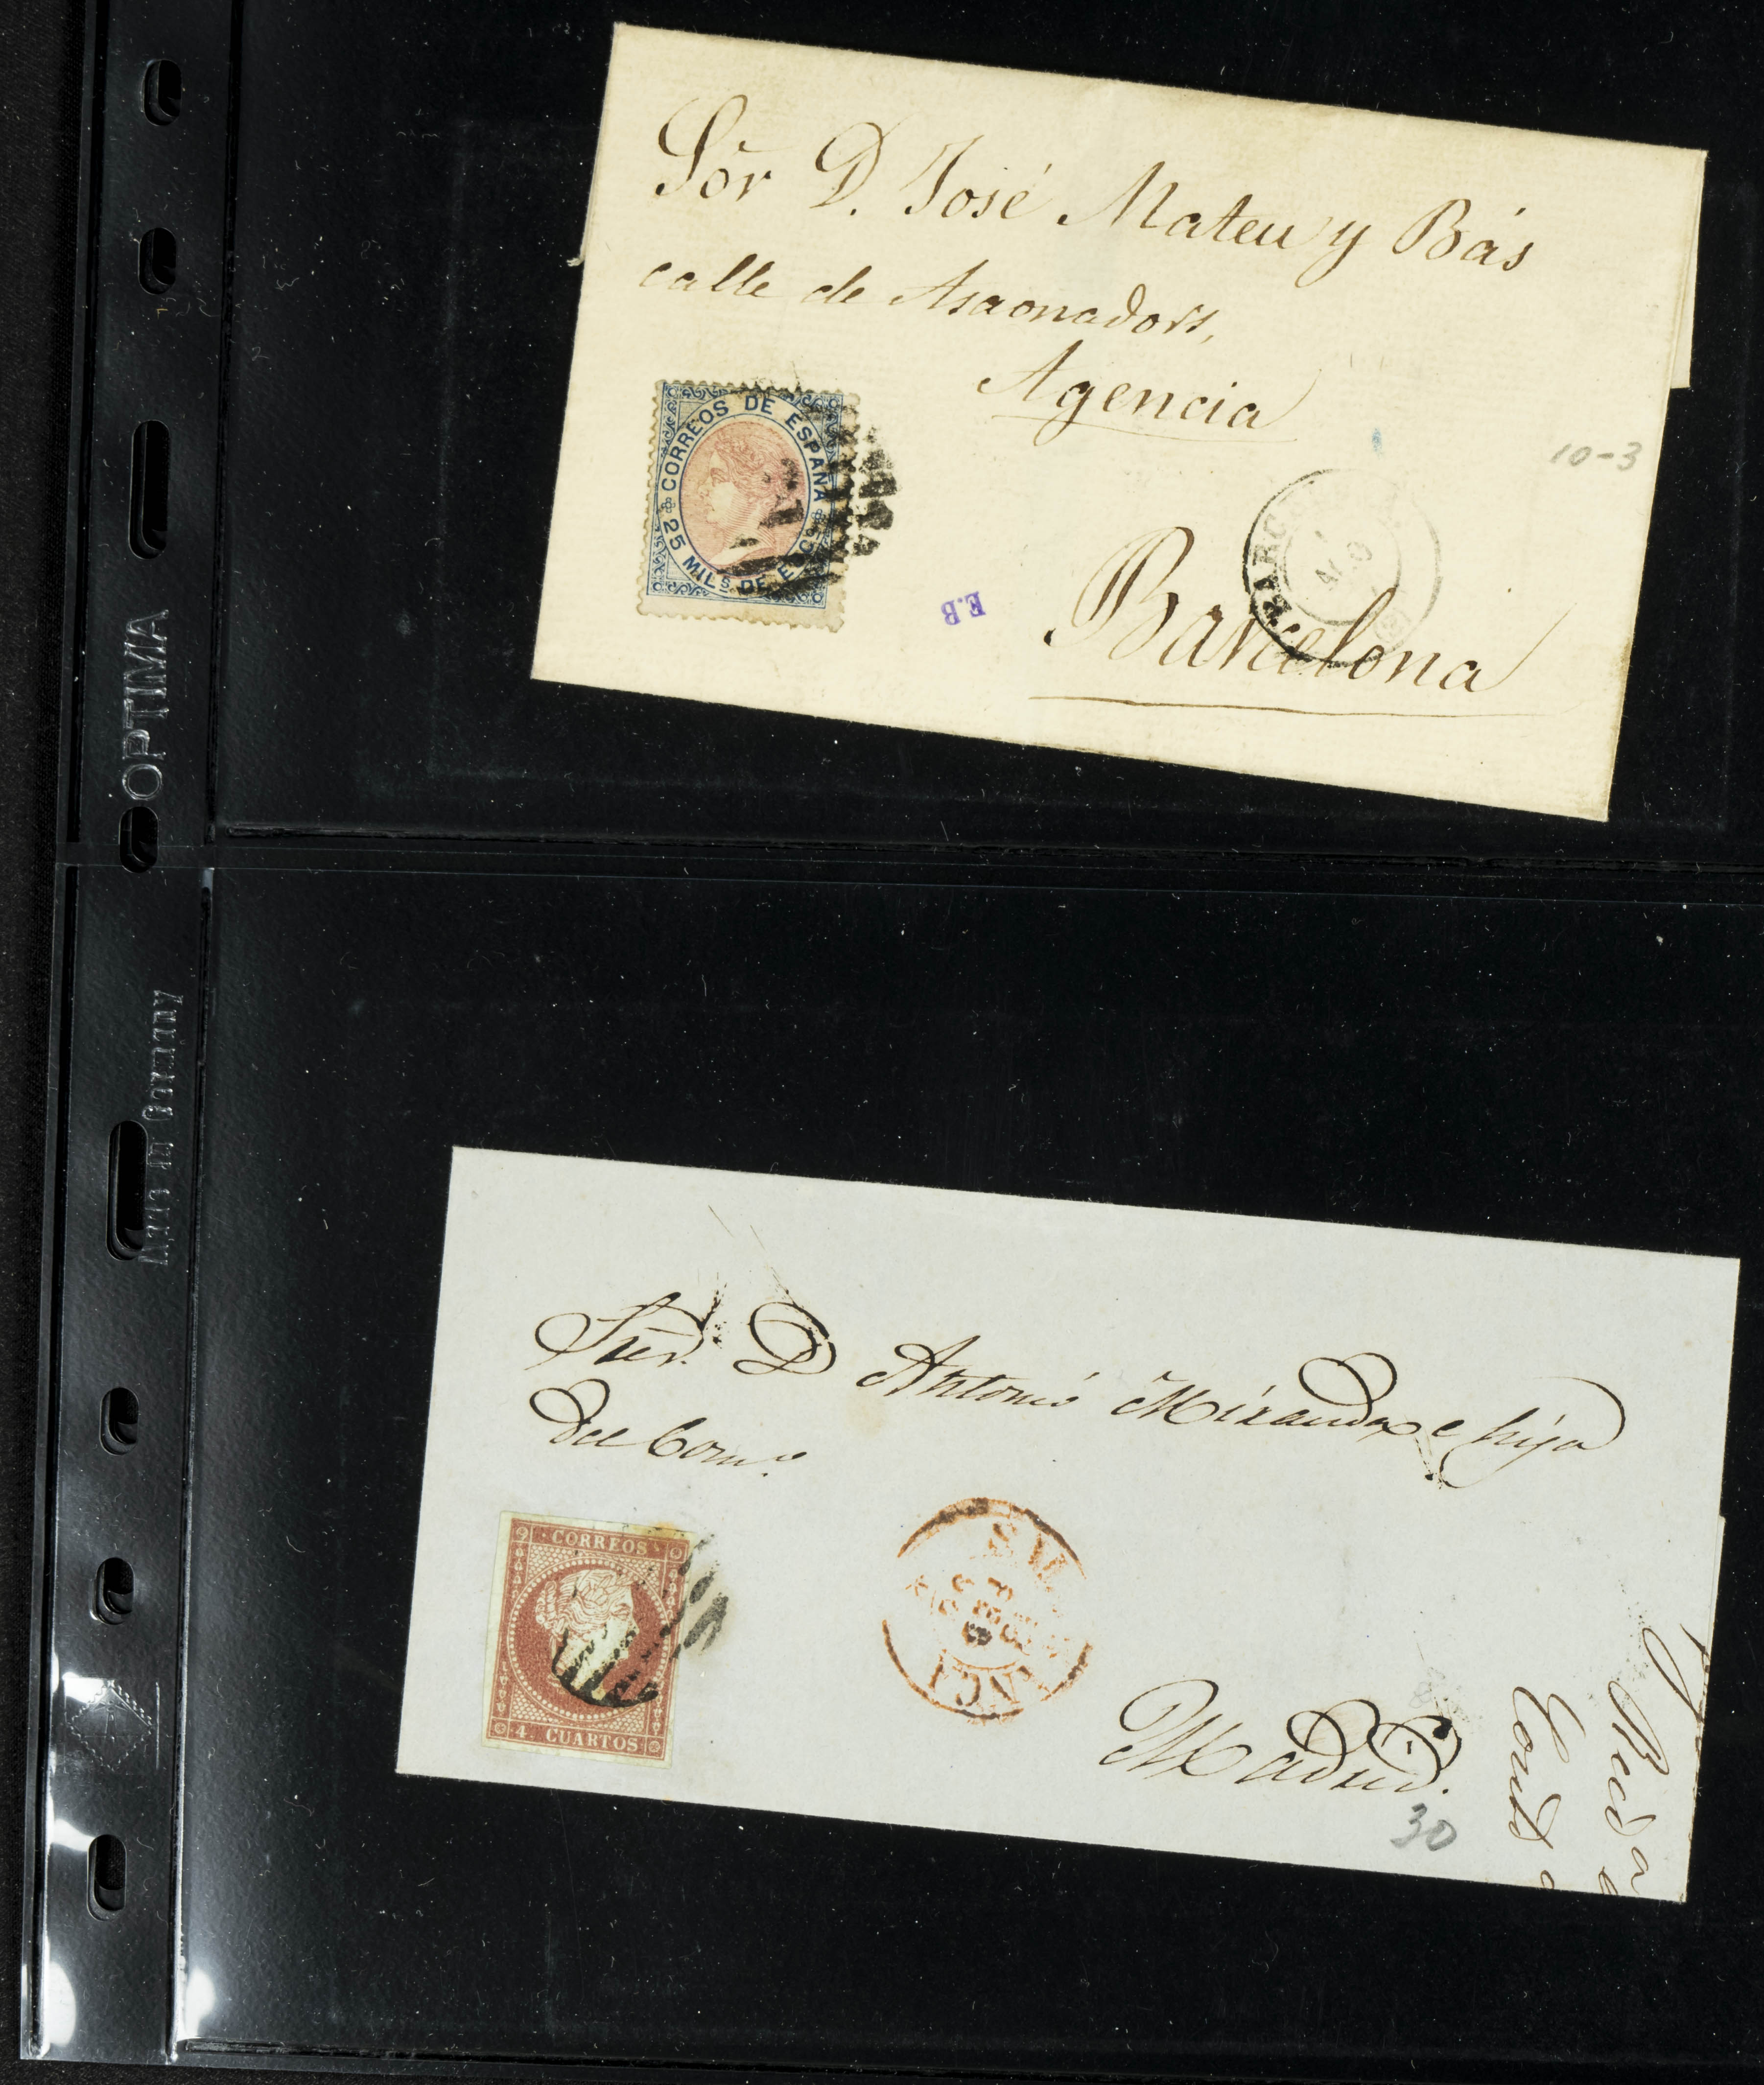 Sōr D. José Mateu y Bás
calle de Asaonadors,
Agencia
10-3
CORREOS DE ESPAÑA
25 MILS DE ESCO
E.B
BARC
Barcelona
OPTIMA
Made in Germany
D Antonio Miranda e hijo
Del Comº
CORREOS
4 CUARTOS
Madrid.
30